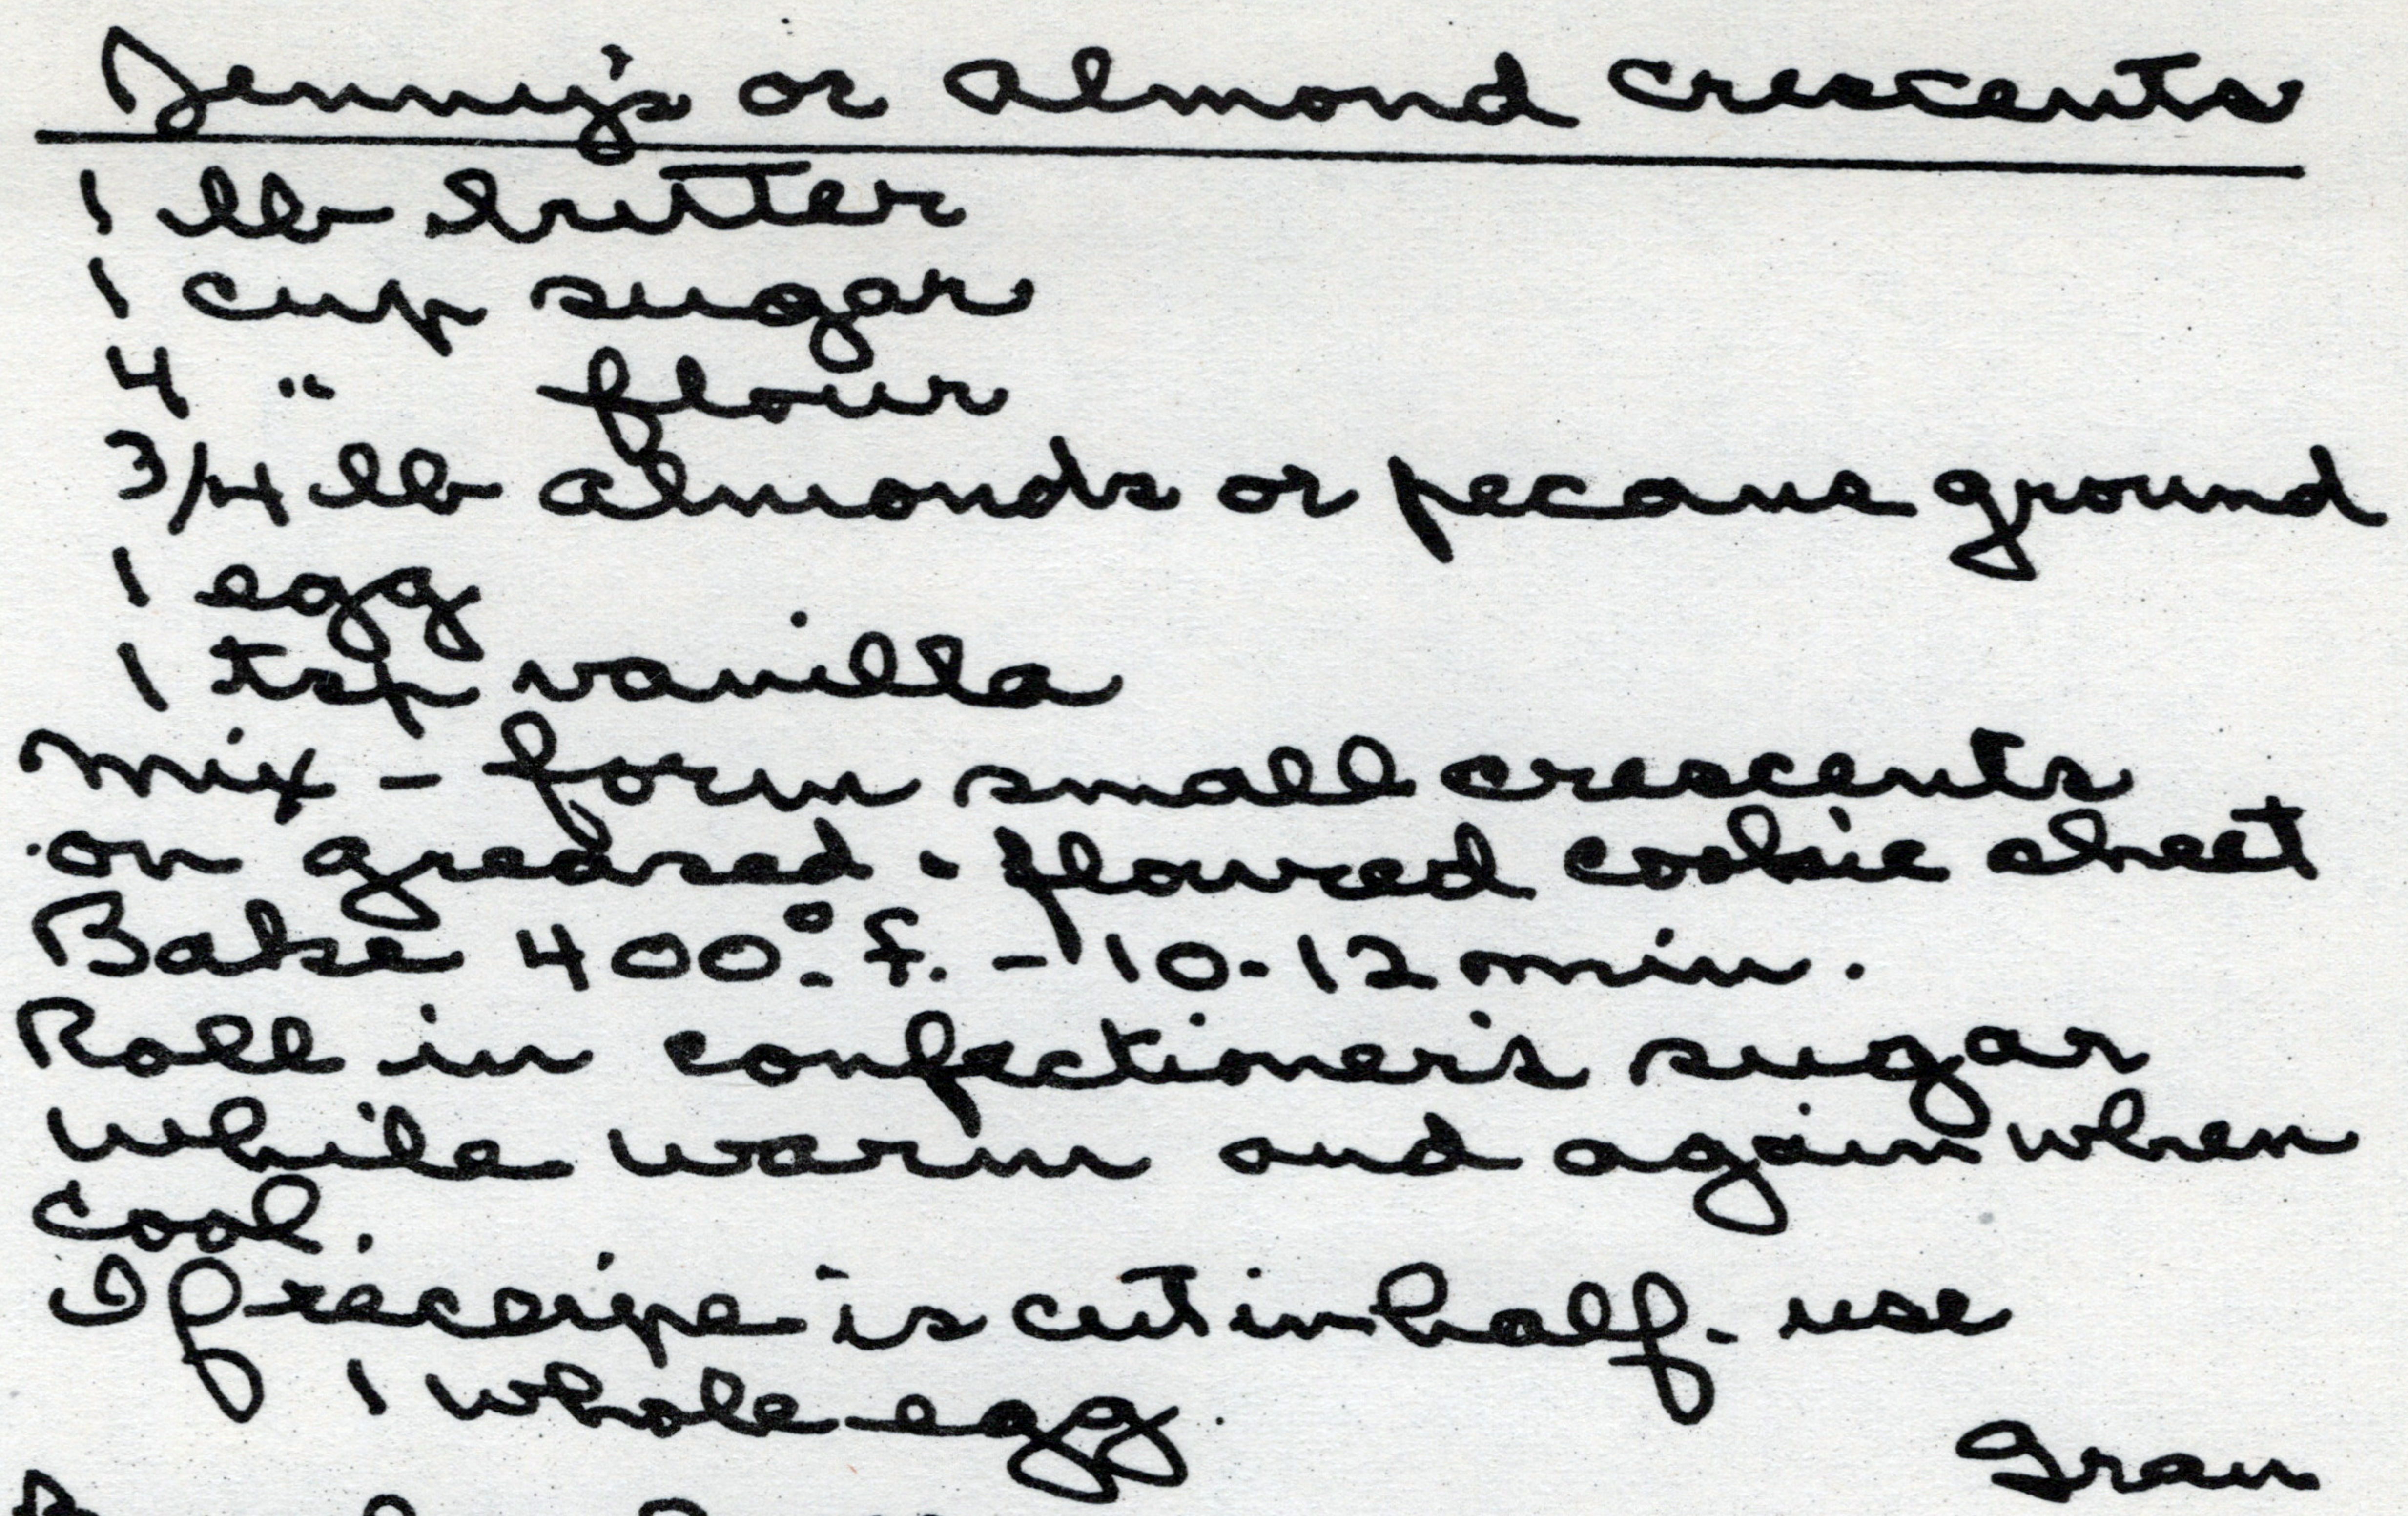 Jenny's or Almond Crescents
1 lb butter
1 cup sugar
4 " flour
3/4 lb almonds or pecans ground
1 egg
1 tsp vanilla
Mix - form small crescents
on greased - floured cookie sheet
Bake 400° F. - 10-12 min.
Roll in confectioner's sugar
while warm and again when
cool.
If receipe is cut in half - use
1 whole egg.
Gran